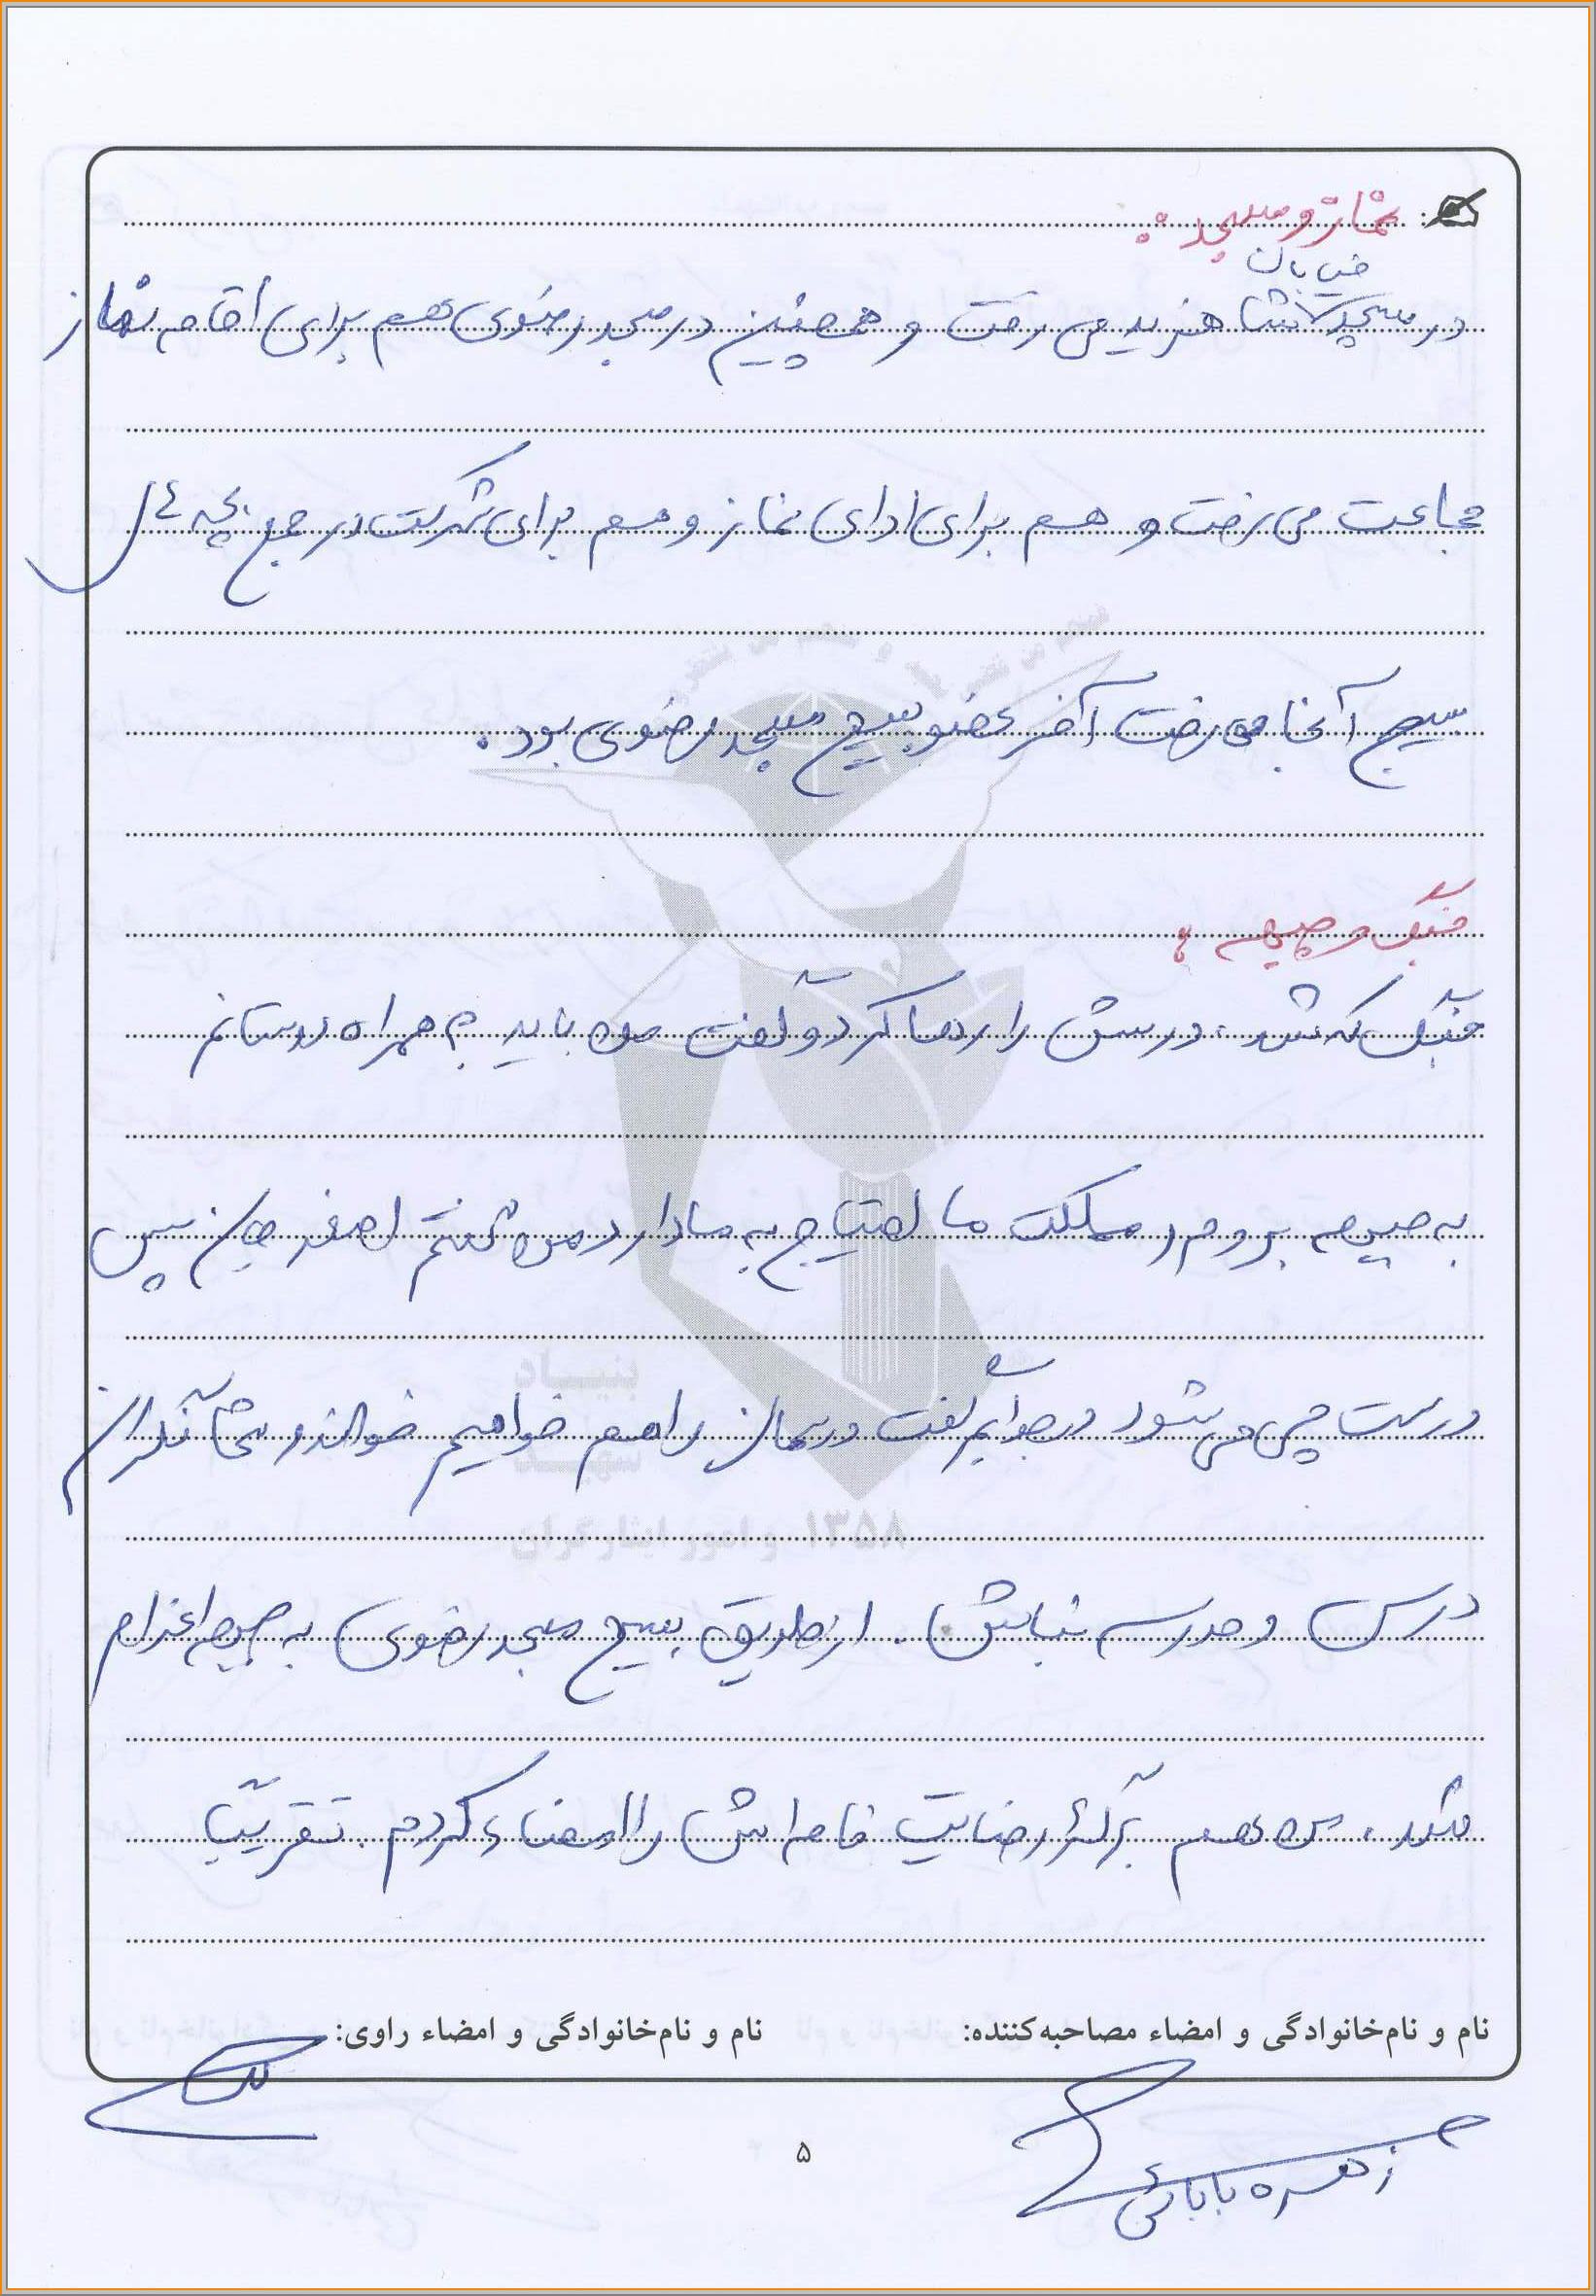 نماز و مسجد:
خیابان
در مسجد شاهزید می رفت و همچنین در مسجد رضوی هم برای اقامه نماز
جماعت می رفت و هم برای ادای نماز و هم برای شرکت در جمع بچه های
بسیج آنجا می رفت آخر عضو بسیج مسجد رضوی بود.
جنگ و جبهه:
جنگ که شد، درسش را رها کرد و گفت من باید به همراه دوستانم
به جبهه بروم، مملکت ما احتیاج به ما دارد من گفتم اصغر جان پس
درست چی می شود در جوابم گفت درسمان را هم خواهیم خواند شما نگران
درس و مدرسه نباش. از طریق بسیج مسجد رضوی به جبهه اعزام
شد. من هم برگهٔ رضایت نامه اش را امضاء کردم. تقریباً
بنیاد
شهید
و امور ایثارگران ۱۳۵۸
نام و نام‌خانوادگی و امضاء مصاحبه‌کننده: نام و نام‌خانوادگی و امضاء راوی:
زهره بابائی
۵